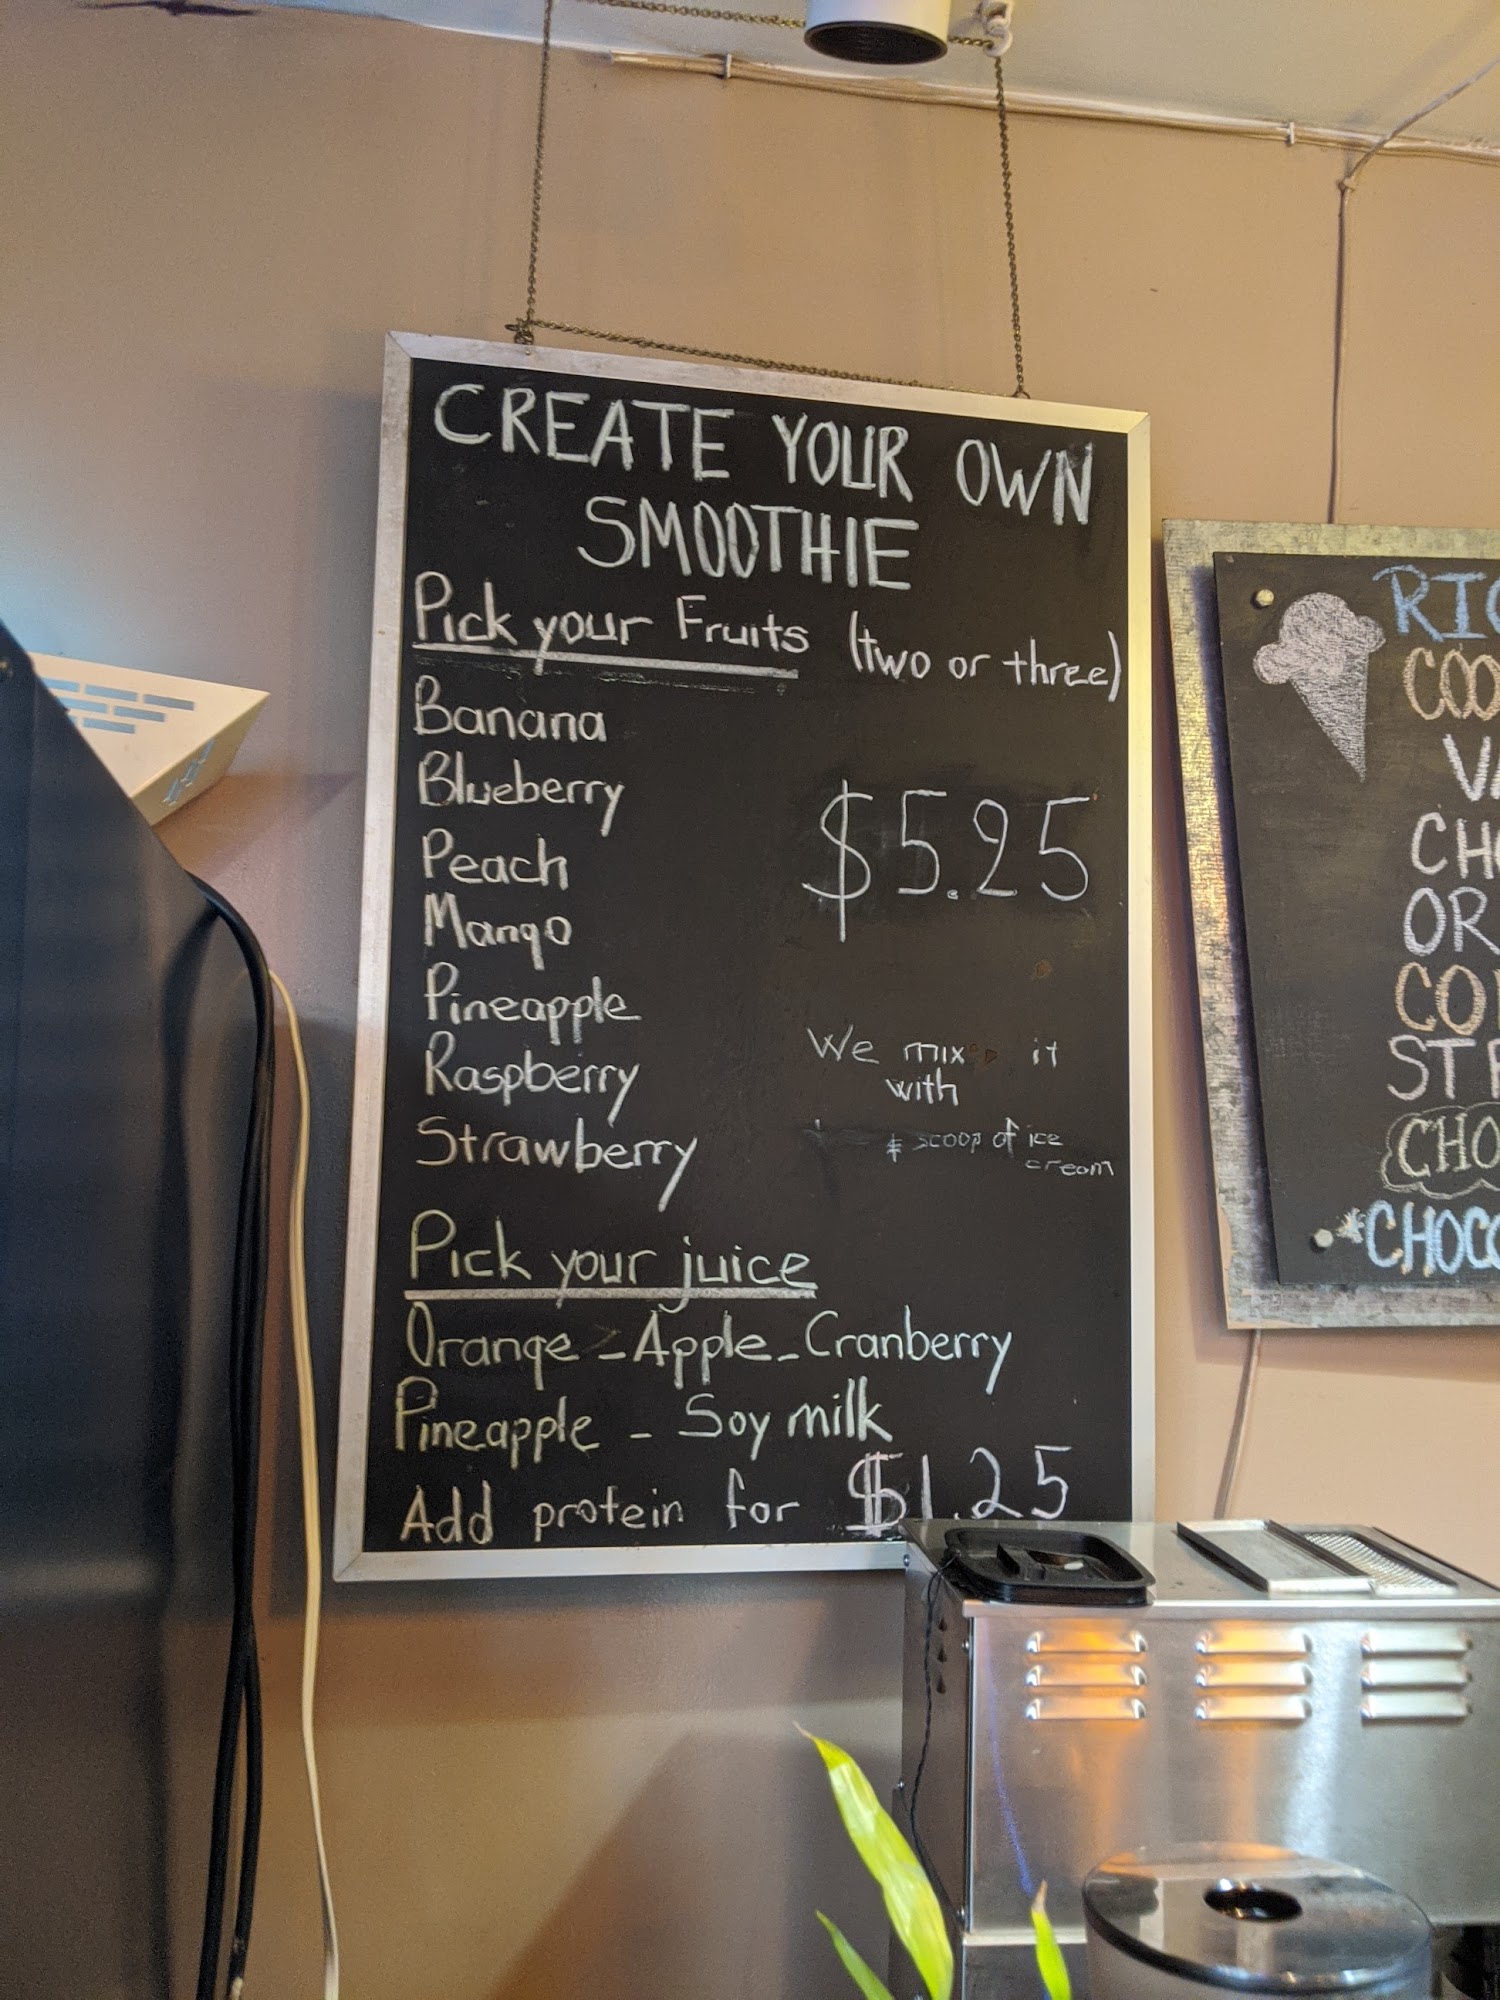 CREATE YOUR OWN
SMOOTHIE
Pick your Fruits (two or three)
Banana
Blueberry
Peach
Mango
Pineapple
Raspberry
Strawberry
$5.25
We mix it
with
scoop of ice
cream
Pick your juice
Orange - Apple - Cranberry
Pineapple - Soy milk
Add protein for $1.25
RIC
COO
VA
CHO
OR
CO
STR
CHO
*CHOCO